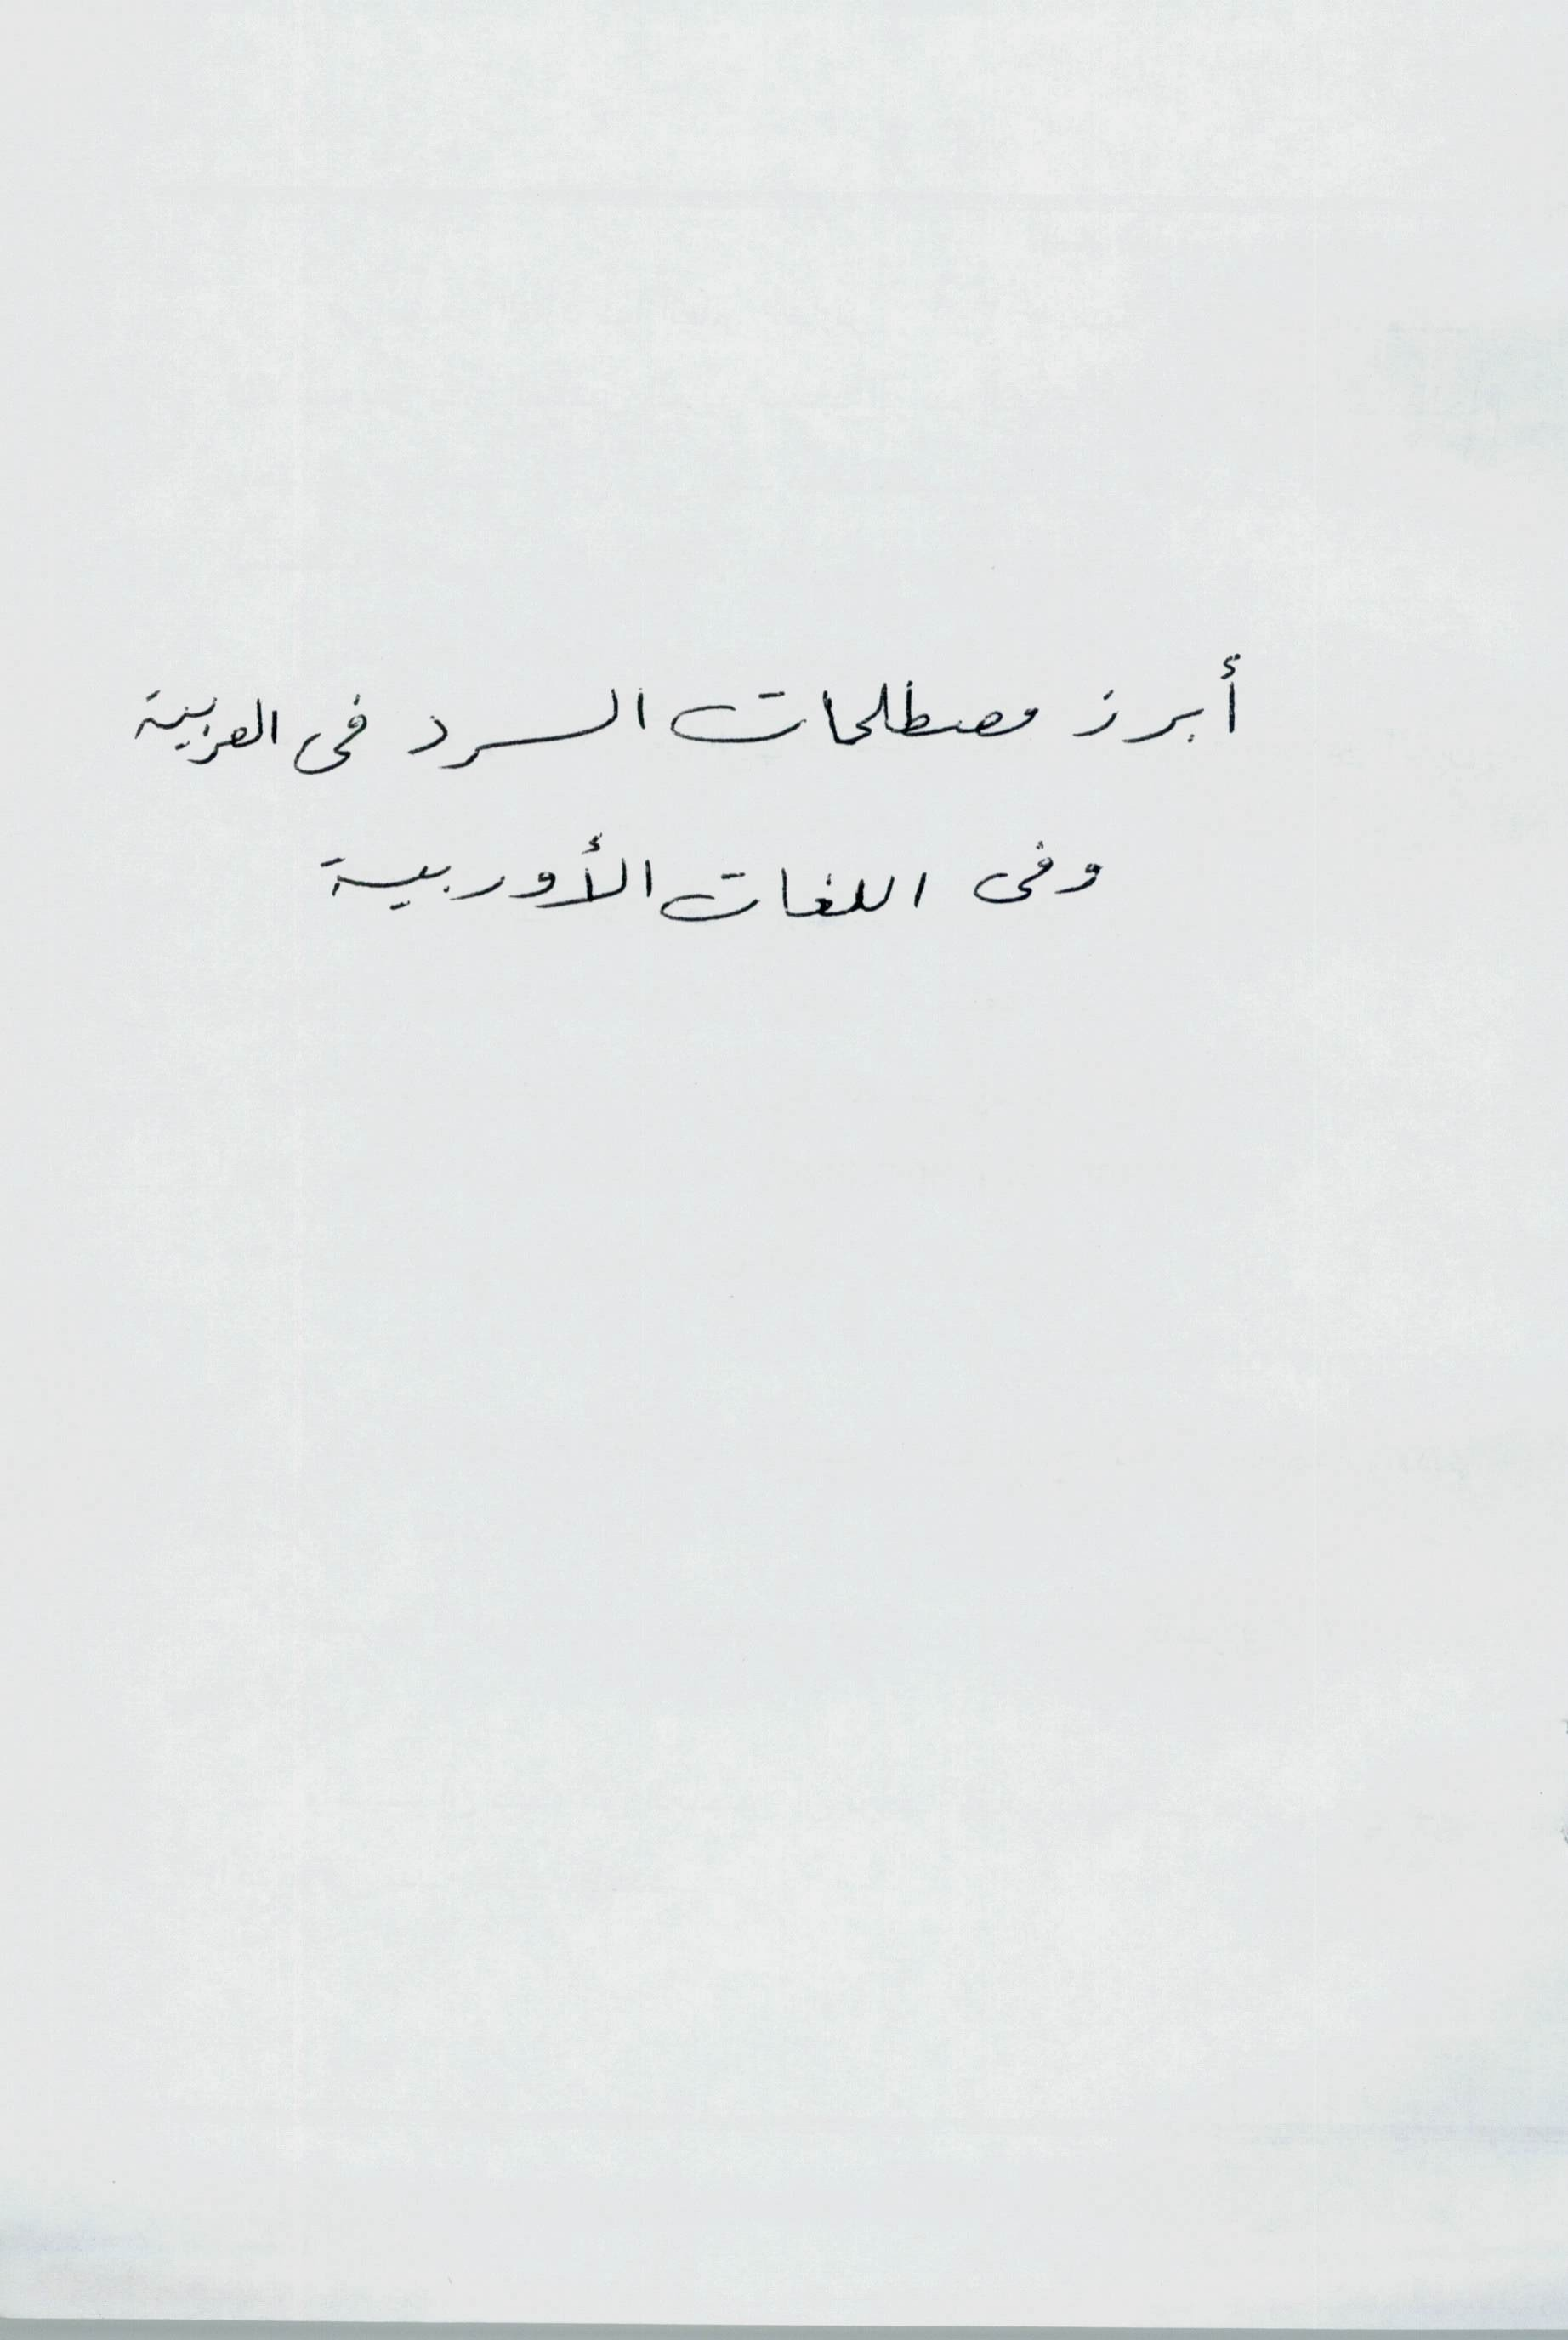 أبرز مصطلحات السرد فى العربية
وفى اللغات الأوربية